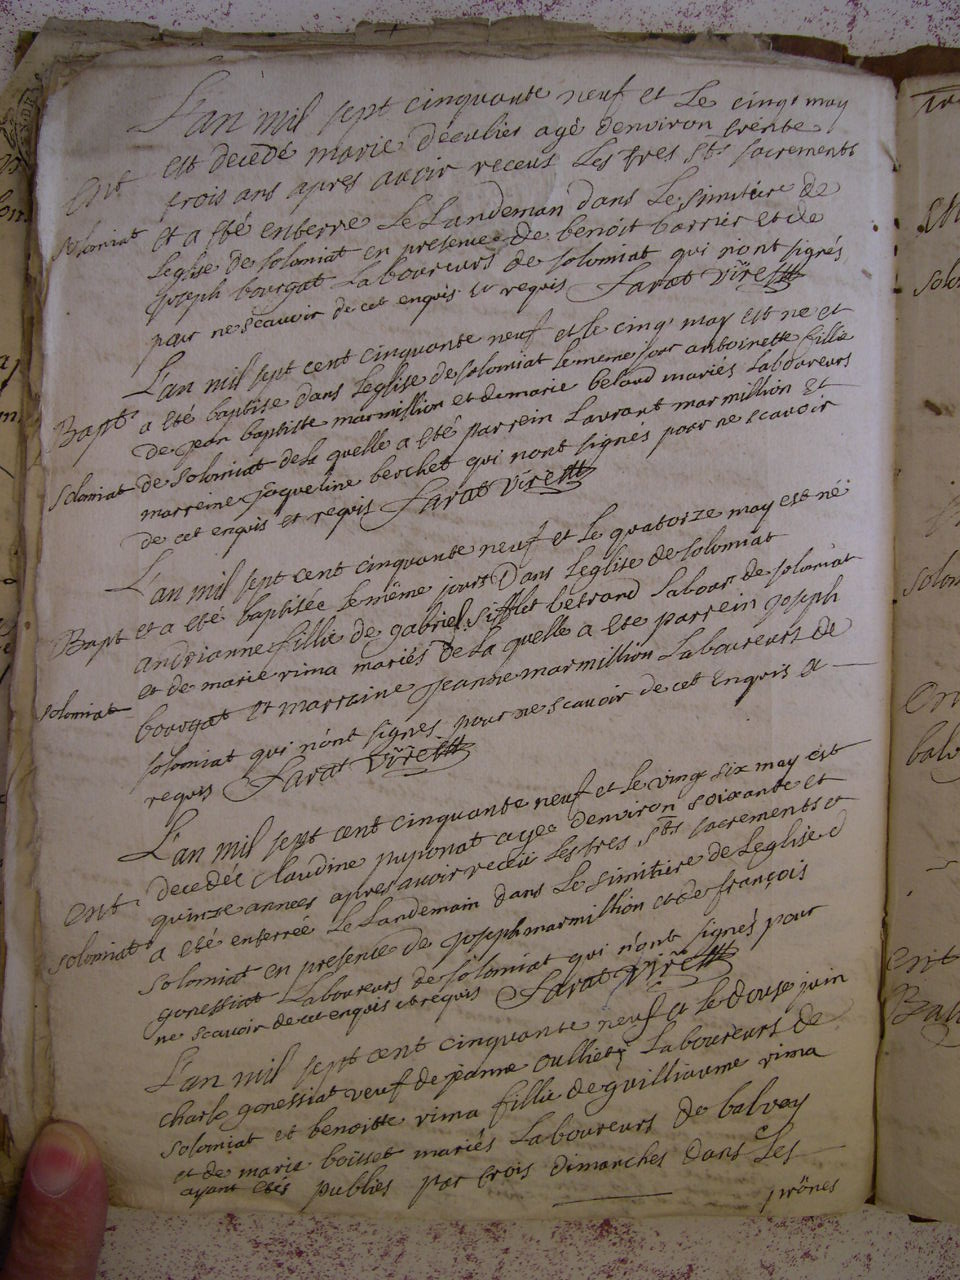 L'an mil sept cinquante neuf et Le cinqe may
est decedé marie decullies agé denviron trente
Ent
trois ans apres avoir receus Les tres Sts sacrements
solomiat
et a été enterre Le Landeman dans Le Simitiere de
Leglise de solomiat en presence de benoit barrier et de
joseph bourgat Laboureurs de solomiat qui n'ont signés
pour ne scavoir de cet enquis et requis Savat Vire
L'an mil sept cent cinquante neuf et le cinqe may est ne et
Bapt
a été baptise dans Leglise de solomiat le meme jour antoinette fille
de jean baptiste marmillion et de marie belard mariés Laboureurs
solomiat
de solomiat de la quelle a été parrein Laurant marmillion et
marreine jaqueline berchet qui nont signés pour ne scavoir
de cet enquis et requis Savat Vire
L'an mil sept cent cinquante neuf et le quatorze may est né
Bapt
et a eté baptisée Le même jour Dans Leglise de solomiat
andrianne fillie de gabriel Sifflet betrand Labour de solomiat
et de marie rima mariés de La quelle a ete parrein joseph
solomiat
bourgat et marraine jeanne marmillion Laboureurs de
solomiat qui n'ont signes pour ne scavoir de cet Enquis a
requis Savat Vire
L'an mil sept cent cinquante neuf et le vingt six may est
decedée Claudine puponat agée denviron soixante et
Ent
quinze annees apres avoir receu Les tres Sts sacrements et
solomiat
a eté enterrée Le Landemain dans Le simitire de Leglise d
solomiat en presence de joseph marmillion et de françois
gonessiat Laboureurs de solomiat qui n'ont signés pour
ne scavoir de cet enquis et requis Savat Vire
L'an mil sept cent cinquante neuf et le douse juin
charle gonessiat veuf de jeanne oulliet Laboureurs de
solomiat et benoitte rima fillie de guilliaume rima
et de marie boisset mariés Laboureurs de balvay
ayant étés publies par trois dimanches dans Les
prônes